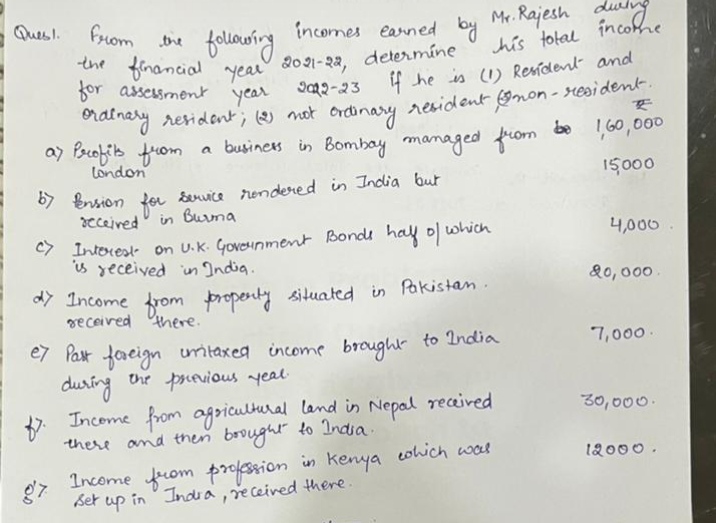 Ques1. From the following incomes earned by Mr. Rajesh during
the financial year 2021-22, determine his total income
for assessment year 2022-23 if he is (1) Resident and
ordinary resident; (2) not ordinary resident (3) non-resident.
₹
a) Profits from a business in Bombay managed from 1,60,000
London
b) Pension for service rendered in India but 15,000
received in Burma
c) Interest on U.K. Government Bonds half of which 4,000.
is received in India.
d) Income from property situated in Pakistan. 20,000.
received there.
e) Past foreign untaxed income brought to India 7,000.
during the previous year.
f). Income from agricultural land in Nepal received 30,000.
there and then brought to India.
g). Income from profession in Kenya which was 12000.
set up in India, received there.